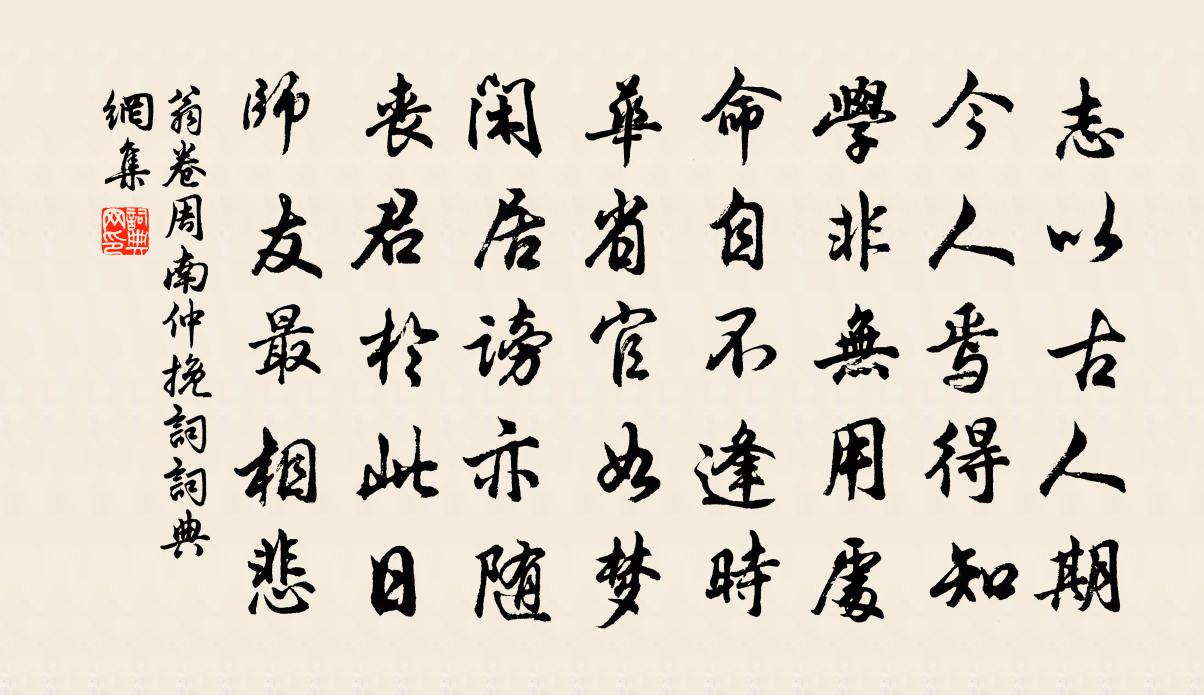 志以古人期
今人焉得知
學非無用處
命自不逢時
華省官如梦
閑居謗亦随
喪君於此日
師友最相悲
翁卷周南仲挽詞詞典
網集
詞典网印